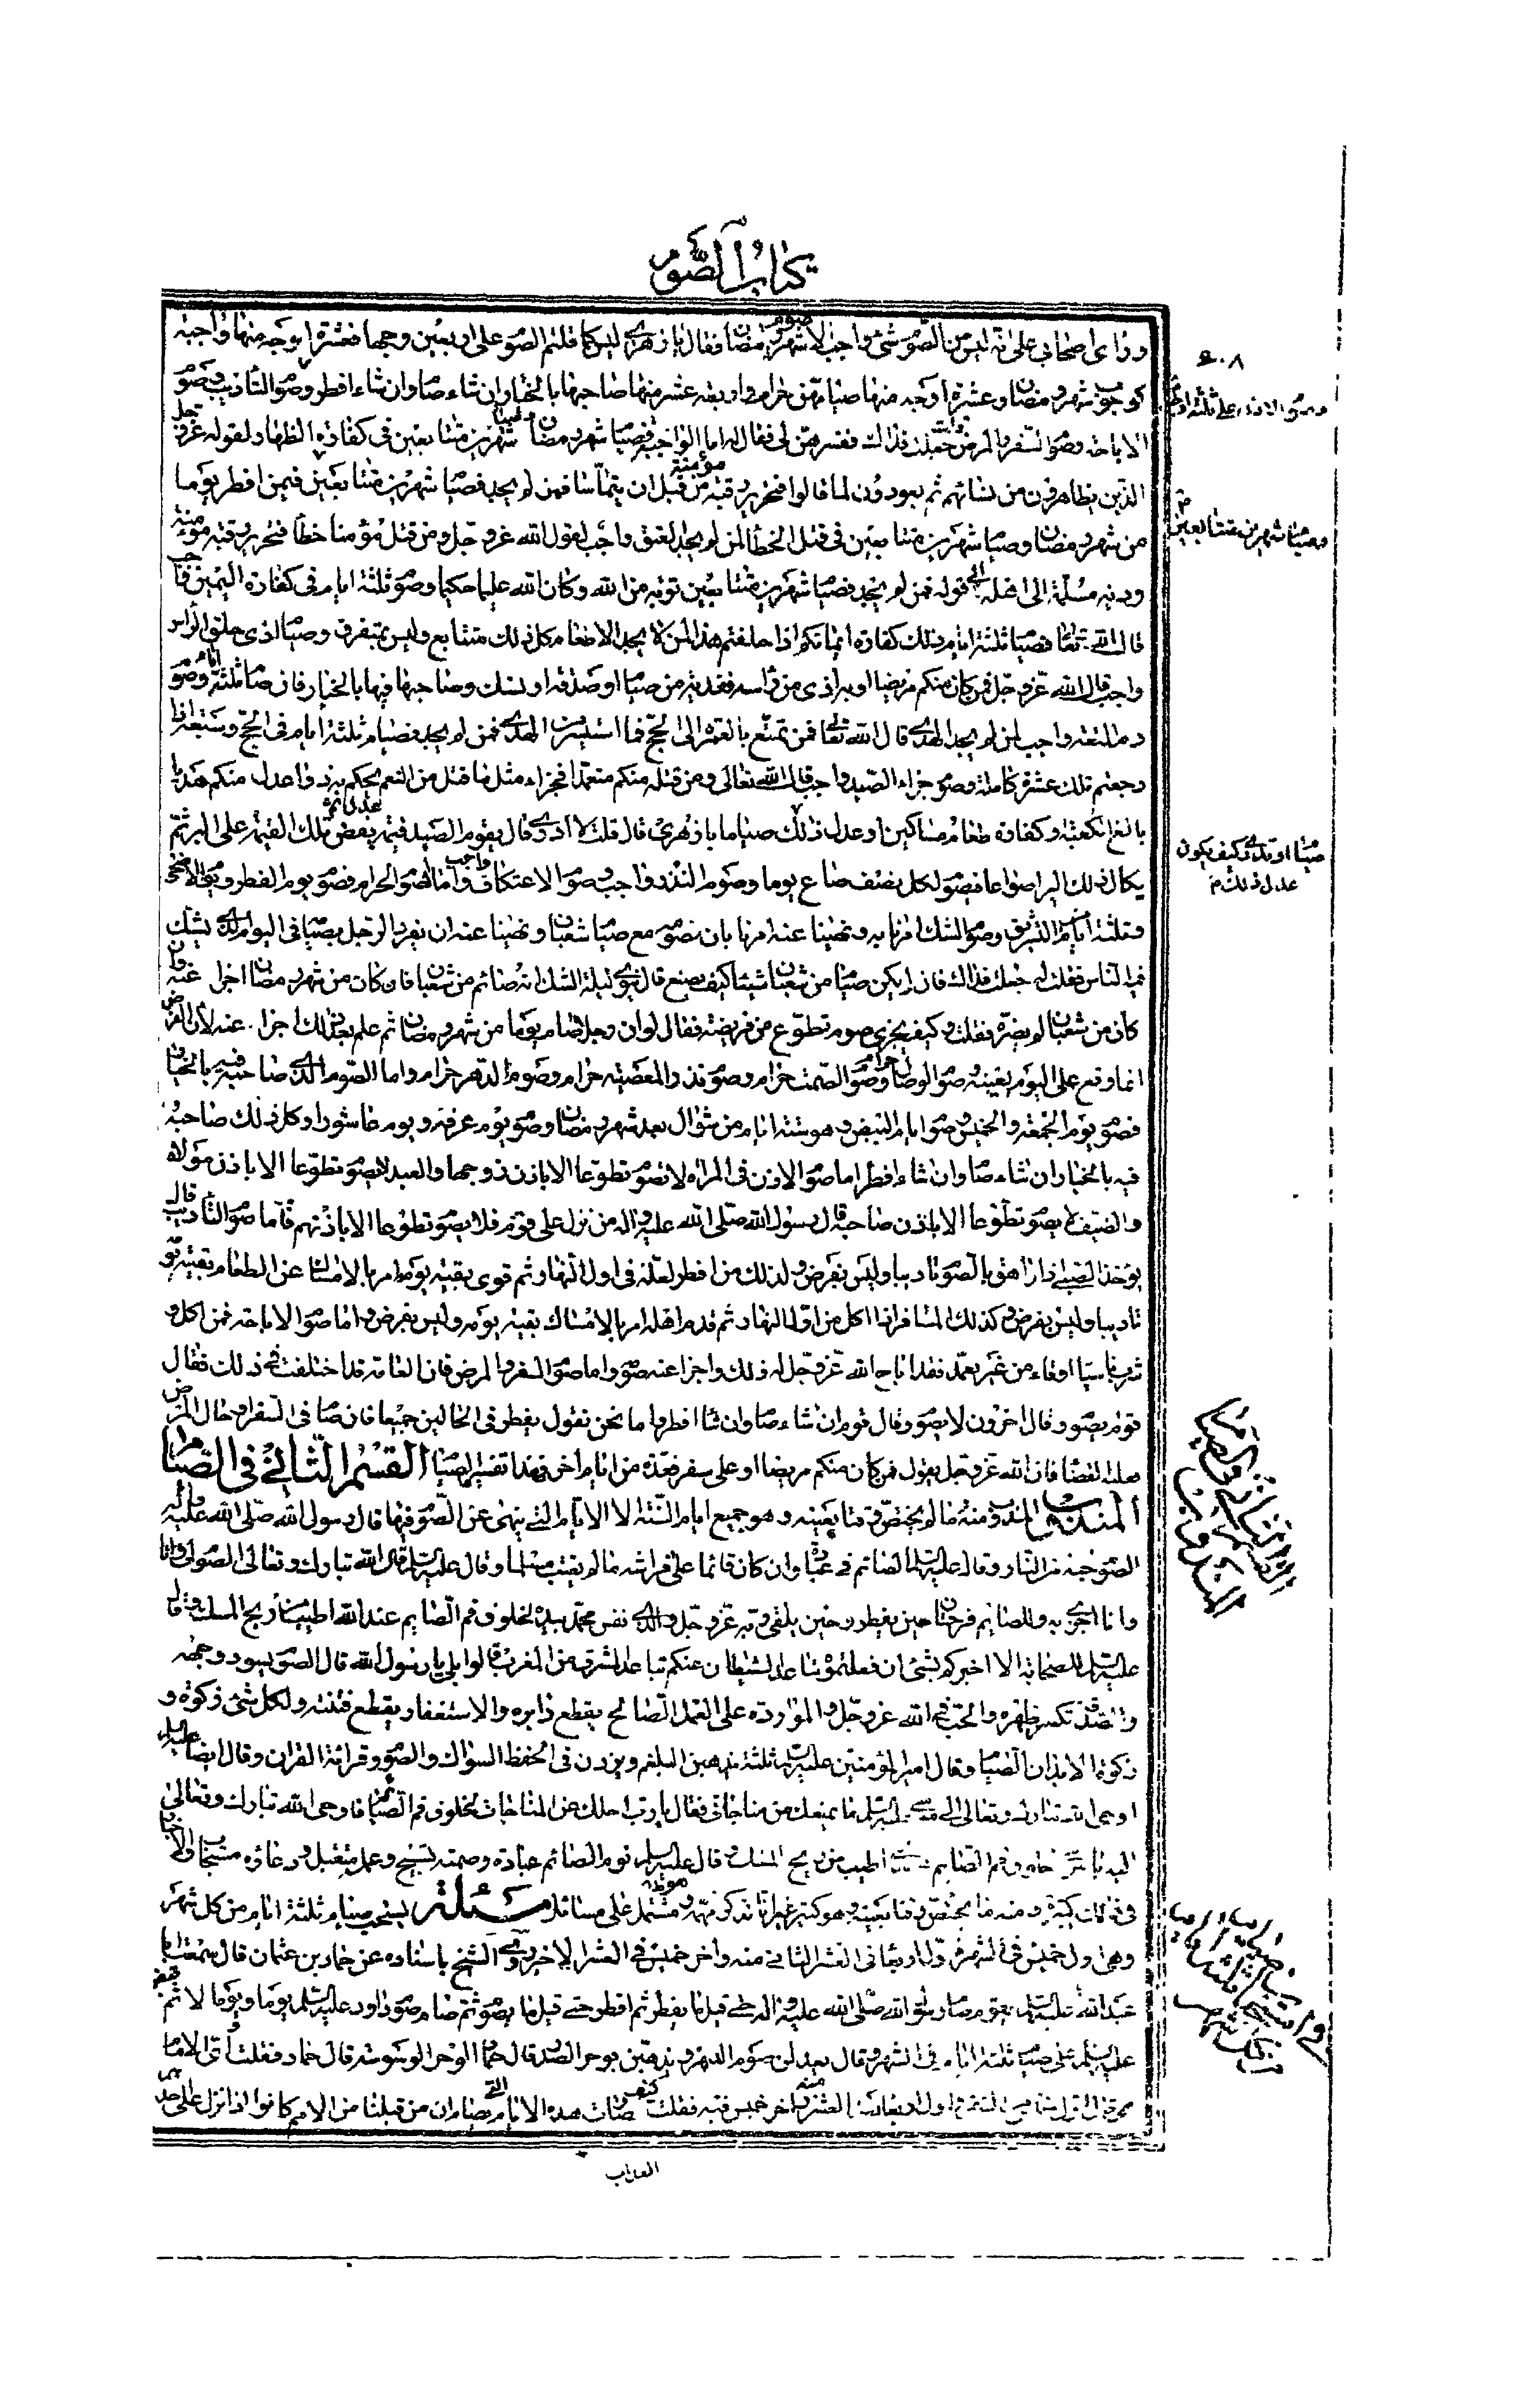 كتاب الصوم
وراى اصحابى على انه ليس من الصوم شئ واجب الا صوم شهر رمضان فقال يا زهرى ليس كما قلتم الصوم على اربعين وجها فعشرة اوجه منها واجبة
كوجوب شهر رمضان وعشرة اوجه منها صيامهن حرام واربعة عشر منها صاحبها بالخيار ان شاء صام وان شاء افطر وصوم التأديب وصوم
الاباحة وصوم السفر والمرض قلت جعلت فداك فسرهن لى فقال اما الواجبة فصيام شهر رمضان وصيام شهرين متتابعين فى كفارة الظهار لقوله عز وجل
الذين يظاهرون من نسائهم ثم يعودون لما قالوا فتحرير رقبة مؤمنة من قبل ان يتماسا فمن لم يجد فصيام شهرين متتابعين فيمن افطر يوما
من شهر رمضان وصيام شهرين متتابعين فى قتل الخطأ لمن لم يجد العتق واجب لقول الله عز وجل ومن قتل مؤمنا خطأ فتحرير رقبة مؤمنة
ودية مسلمة الى اهله الى قوله فمن لم يجد فصيام شهرين متتابعين توبة من الله وكان الله عليما حكيما وصوم ثلثة ايام فى كفارة اليمين واجب
قال الله تعالى فصيام ثلثة ايام ذلك كفارة ايمانكم اذا حلفتم هذا لمن لا يجد الاطعام كل ذلك متتابع وليس بمتفرق وصيام اذى حلق الرأس
واجب قال الله عز وجل فمن كان منكم مريضا او به اذى من رأسه ففدية من صيام او صدقة او نسك وصاحبها فيها بالخيار فان صام ثلثة ايام وصوم
دم المتعة واجب لمن لم يجد الهدى قال الله تعالى فمن تمتع بالعمرة الى الحج فما استيسر من الهدى فمن لم يجد فصيام ثلثة ايام فى الحج وسبعة اذا
رجعتم تلك عشرة كاملة وصوم جزاء الصيد واجب قال الله تعالى ومن قتله منكم متعمدا فجزاء مثل ما قتل من النعم يحكم به ذوا عدل منكم هديا
بالغ الكعبة او كفارة طعام مساكين او عدل ذلك صياما يا زهرى قال قلت لا ادرى قال يقوم الصيد قيمة عدل ثم يفض تلك القيمة على البر ثم
يكال ذلك البر اصواعا فيصوم لكل نصف صاع يوما وصوم النذر واجب وصوم الاعتكاف واجب واما الصوم الحرام فصوم يوم الفطر ويوم الاضحى
وثلثة ايام التشريق وصوم الشك امرنا به ونهينا عنه امرنا بان نصومه مع صيام شعبان ونهينا عنه ان ينفرد الرجل بصيامه فى اليوم الذى يشك
فيه الناس فقلت له جعلت فداك فان لم يكن صيام من شعبان شيئا كيف يصنع قال ينوى ليلة الشك انه صائم من شعبان فان كان من شهر رمضان اجزأ عنه وان
كان من شعبان لم يضره فقلت وكيف يجزى صوم تطوع من فريضة فقال لو ان رجلا صام يوما من شهر رمضان ثم علم بعد ذلك اجزأ عنه لأن الفرض
انما وقع على اليوم بعينه وصوم الوصال حرام وصوم الصمت حرام وصوم نذر المعصية حرام وصوم الدهر حرام واما الصوم الذى صاحبه فيه بالخيار
فصوم يوم الجمعة والخميس وصوم ايام البيض وهو ستة ايام من شوال بعد شهر رمضان وصوم يوم عرفة ويوم عاشورا وكل ذلك صاحبه
فيه بالخيار ان شاء صام وان شاء افطر اما صوم الاذن فى المرأة لا تصوم تطوعا الا باذن زوجها والعبد لا يصوم تطوعا الا باذن مولاه
والضيف لا يصوم تطوعا الا باذن صاحبه قال رسول الله صلى الله عليه واله من نزل على قوم فلا يصوم تطوعا الا باذنهم فاما صوم التأديب قال
يؤخذ الصبى اذا راهق بالصوم تاديبا وليس بفرض ولذلك من افطر لعلة فى اول النهار ثم قوى بقية يومه امر بالامساك عن الطعام بقية يومه
تاديبا وليس بفرض وكذلك المسافر اذا اكل من اول النهار ثم قدم اهله امر بالامساك بقية يومه وليس بفرض واما صوم الاباحة فمن اكل و
شرب ناسيا او قاء من غير تعمد فقد اباح الله عز وجل له ذلك واجزأ عنه صومه واما صوم السفر والمرض فان العامة قد اختلفت فى ذلك فقال
قوم يصوم وقال اخرون لا يصوم وقال قوم ان شاء صام وان شاء افطر واما نحن نقول يفطر فى الحالين جميعا فان صام فى السفر او حال المرض
فعليه القضاء فان الله عز وجل يقول فمن كان منكم مريضا او على سفر فعدة من ايام اخر فهذا تفسير الصيام القسم الثانى فى الصيام
المندوب المندوب منه ما لم يختص وقتا بعينه وهو جميع ايام السنة الا الايام التى ينهى عن الصوم فيها قال رسول الله صلى الله عليه واله
الصوم جنة من النار وقال عليه السلم الصائم فى عبادة وان كان نائما على فراشه ما لم يغتب مسلما وقال عليه السلم قال الله تبارك وتعالى الصوم لى
وانا اجزى به وللصائم فرحتان حين يفطر وحين يلقى ربه عز وجل والذى نفس محمد بيده لخلوف فم الصايم عند الله اطيب من ريح المسك وقال
عليه السلم لاصحابه الا اخبركم بشئ ان فعلتموه تباعد الشيطان عنكم تباعد المشرق من المغرب قالوا بلى يا رسول الله قال الصوم يسود وجهه
والصدقة تكسر ظهره والحب فى الله عز وجل والموازرة على العمل الصالح يقطع دابره والاستغفار يقطع وتينه ولكل شئ زكوة و
زكوة الابدان الصيام وقال امير المؤمنين عليه السلم ثلثة يذهبن البلغم ويزدن فى الحفظ السواك والصوم وقرائة القران وقال ايضا عليه السلم
اوحى الله تبارك وتعالى الى موسى عليه السلم ما يمنعك من مناجاتى فقال يا رب اجلك عن المناجات لخلوف فم الصيام فاوحى الله تبارك وتعالى
اليه يا موسى لخلوف فم الصايم اطيب من ريح المسك وقال عليه السلم نوم الصائم عبادة وصمته تسبيح وعمله متقبل ودعاؤه مستجاب والاخبار
فى ذلك كثيرة ومنه ما يختص وقتا بعينه وهو كثير غير انا نذكر مهمه وهو مشتمل على مسائل مسئلة يستحب صيام ثلثة ايام من كل شهر
وهى اول خميس فى الشهر واول اربعا فى العشر الثانى منه واخر خميس فى العشر الاخير روى الشيخ باسناده عن حماد بن عثمان قال سمعت ابا
عبد الله عليه السلم يقول صام رسول الله صلى الله عليه واله حتى قيل ما يفطر ثم افطر حتى قيل ما يصوم ثم صام صوم داود عليه السلم يوما ويوما لا ثم قبض
عليه السلم على صيام ثلثة ايام فى الشهر وقال يعدلن صوم الدهر ويذهبن بوحر الصدر قال حماد الوحر الوسوسة قال حماد فقلت اى الايام
هى قال اول خميس فى الشهر واول اربعاء بعد العشر منه واخر خميس فيه فقلت كيف صارت هذه الايام التى يصام ان من قبلنا من الامم كانوا اذا نزل على احدهم
العذاب
٤٠٨
وصوم الاذن على ثلثة اوجه
وصيام شهرين متتابعين
صياما او تدرى كيف يكون
عدل ذلك
القسم الثانى فى الصيام
المندوب